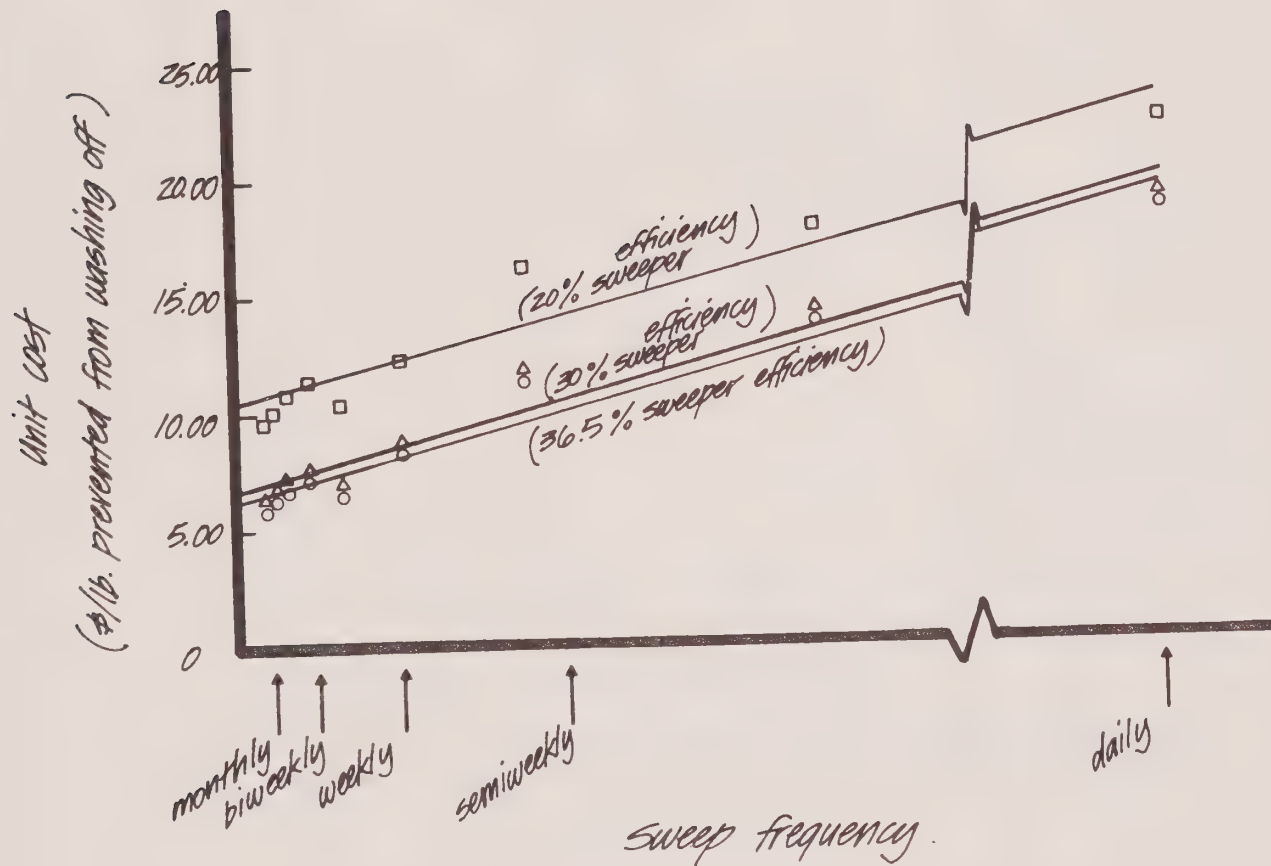 Unit cost
(¢/lb. prevented from washing off)
25.00
20.00
15.00
10.00
5.00
0
(20% sweeper
efficiency)
(30% sweeper
efficiency)
(36.5% sweeper efficiency)
monthly
biweekly
weekly
semiweekly
daily
Sweep frequency.